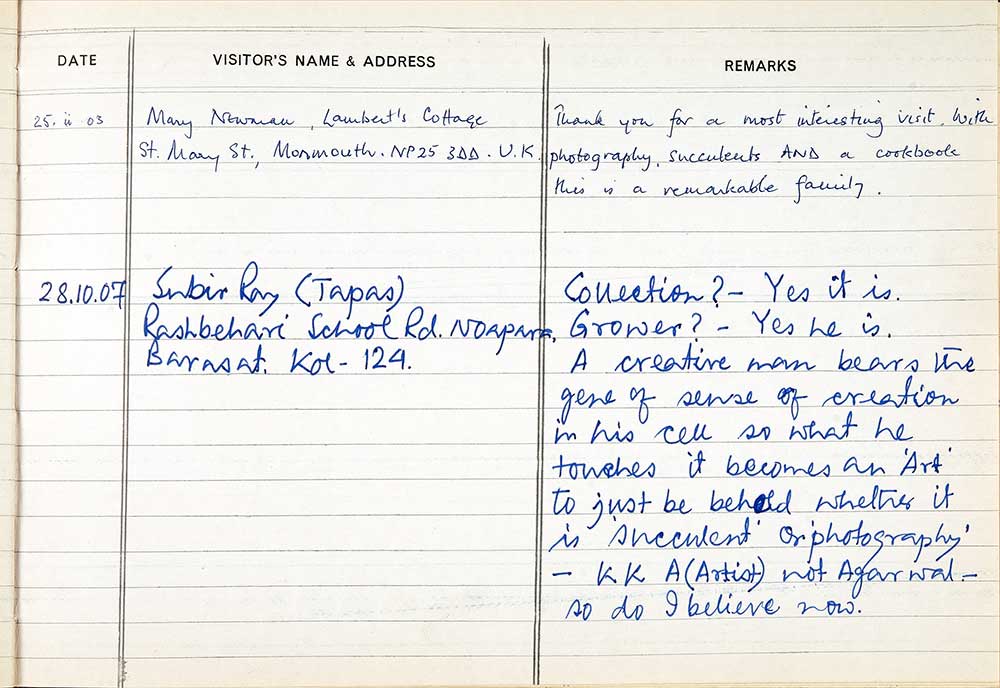 DATE
VISITOR'S NAME & ADDRESS
REMARKS
25. ii 03
Mary Newman, Lambert's Cottage
St. Mary St., Monmouth. NP25 3DD. U.K.
Thank you for a most interesting visit. With
photography, succulents AND a cookbook
this is a remarkable family.
28.10.07
Subir Ray (Tapas)
Rashbehari School Rd. Noapara,
Barasat. Kol- 124.
Collection? - Yes it is.
Grower? - Yes he is.
A creative man bears the
gene of sense of creation
in his cell so what he
touches it becomes an 'Art'
to just be behold whether it
is 'succulent' or 'photography'
- K K A (Artist) not Agarwal -
so do I believe now.